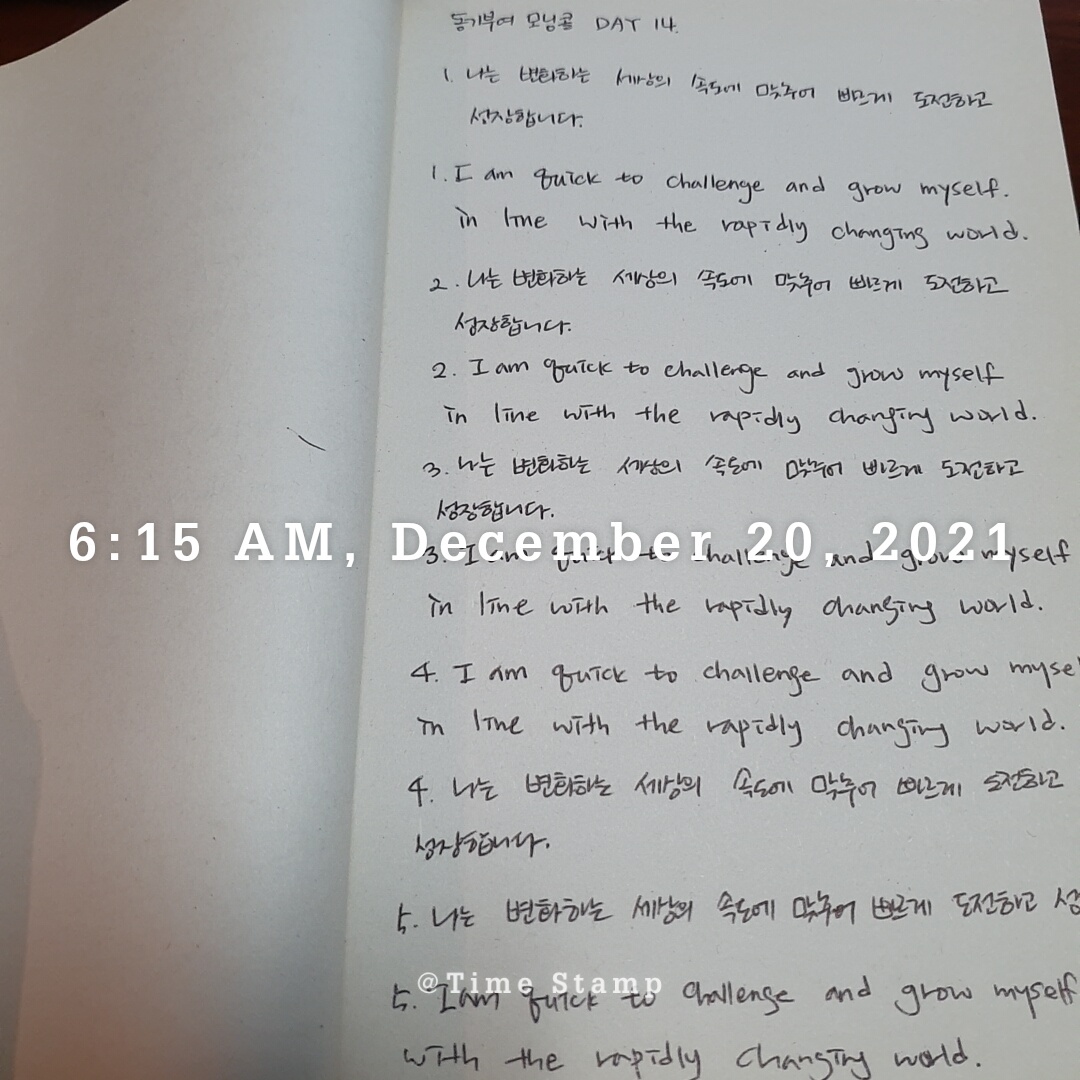 동기부여 모닝콜 DAY 14.
1. 나는 변화하는 세상의 속도에 맞추어 빠르게 도전하고
성장합니다.
1. I am quick to challenge and grow myself.
in line with the rapidly changing world.
2. 나는 변화하는 세상의 속도에 맞추어 빠르게 도전하고
성장합니다.
2. I am quick to challenge and grow myself
in line with the rapidly changing world.
3. 나는 변화하는 세상의 속도에 맞추어 빠르게 도전하고
성장합니다.
6:15 AM, December 20, 2021
3. I am quick to challenge and grow myself
in line with the rapidly changing world.
4. I am quick to challenge and grow myse
in line with the rapidly changing world.
4. 나는 변화하는 세상의 속도에 맞추어 빠르게 도전하고
성장합니다.
5. 나는 변화하는 세상의 속도에 맞추어 빠르게 도전하고 성
@Time Stamp
5. I am quick to challenge and grow myself
with the rapidly changing world.